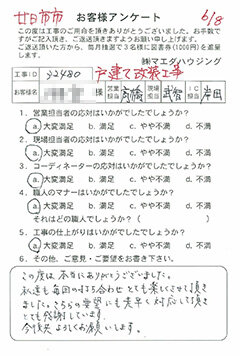 廿日市市 お客様アンケート 6/8
この度は工事のご用命を頂きありがとうございました。お手数で
すがご記入頂き、ご返送頂きますようお願い申し上げます。
ご返送頂いた方から、毎月抽選で3名様に図書券(1000円)を進呈
します。
㈱マエダハウジング
工事ID 32480 戸建て改築工事
お客様名 様 営業担当 高橋 現場担当 武智 IC担当 岸田
1. 営業担当者の応対はいかがでしたでしょうか?
a. 大変満足 b. 満足 c. やや不満 d. 不満
2. 現場担当者の応対はいかがでしたでしょうか?
a. 大変満足 b. 満足 c. やや不満 d. 不満
3. コーディネーターの応対はいかがでしたでしょうか?
a. 大変満足 b. 満足 c. やや不満 d. 不満
4. 職人のマナーはいかがでしたでしょうか?
a. 大変満足 b. 満足 c. やや不満 d. 不満
それはどの職人でしょうか?( )
5. 工事の仕上がりはいかがでしたでしょうか?
a. 大変満足 b. 満足 c. やや不満 d. 不満
6. その他、ご意見・ご要望をお書き下さい。
この度は本当にありがとうございました。
私達も毎回の打ち合わせとても楽しくさせて頂き
ました。こちらの要望にも素早く対応して頂き
とても感謝しています。
今後共よろしくお願いします。